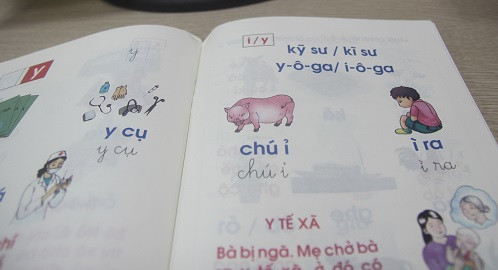 y
y
y cụ
y cụ
i/y
kỹ sư / kĩ sư
y-ô-ga/ i-ô-ga
chú ỉ
ì ra
chú ỉ
ì ra
Y TẾ XÃ
Bà bị ngã. Mẹ chở bà
tế xã, ở đó có